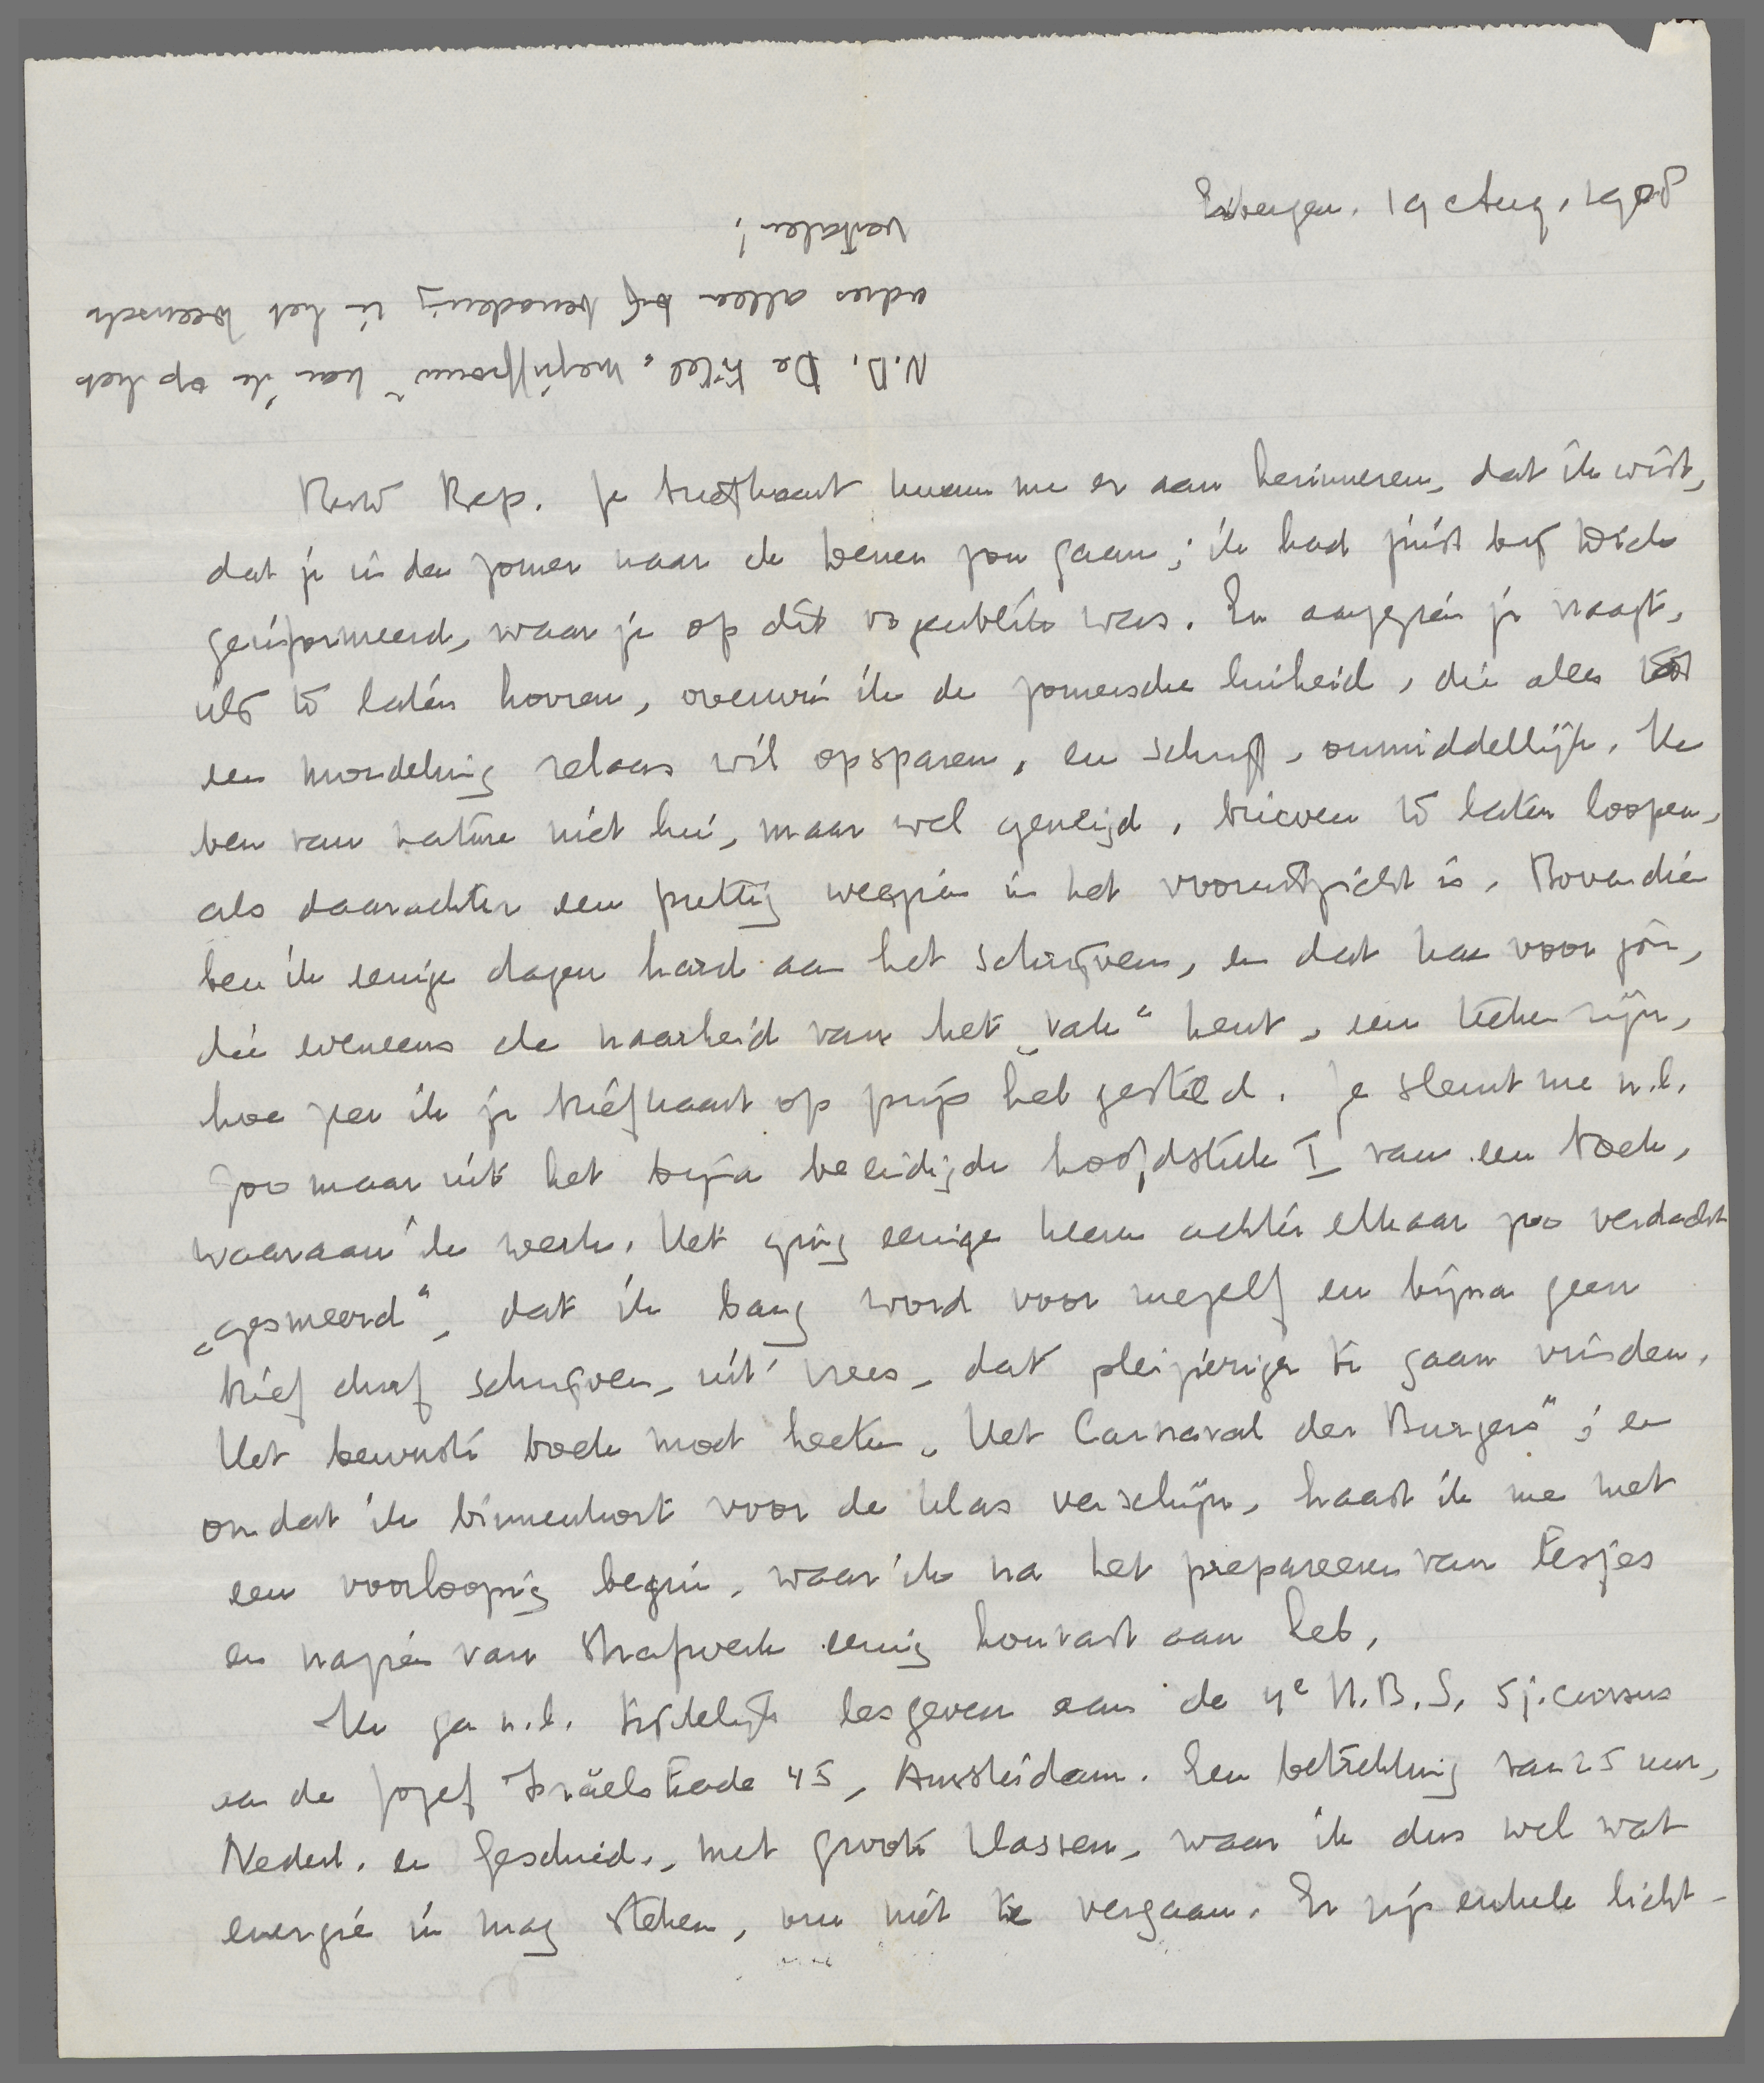 Eibergen, 19 Aug. 1928
N.B. De titel „mejuffrouw" kan ik op het
adres alleen bij benadering in het Weensch
vertalen!
Beste Bep. Je briefkaart kwam me er aan herinneren, dat ik wist,
dat je in den zomer naar de Wenen zou gaan; ik had juist bij Dick
geïnformeerd, waar je op dit oogenblik was. En aangezien je vraagt,
iets te laten hooren, overwin ik de zomersche luiheid, die alles tot
een mondeling relaas wil opsparen, en schrijf, onmiddellijk. Ik
ben van nature niet lui, maar wel geneigd, brieven te laten loopen,
als daarachter een prettig weerzien in het vooruitzicht is. Bovendien
ben ik eenige dagen hard aan het schrijven, en dat kan voor jou,
die eveneens de naarheid van het „vak" kent, een teeken zijn,
hoe zeer ik je briefkaart op prijs heb gesteld. Je sleurt me n.l.
zoo maar uit het bijna beëindigde hoofdstuk I van een boek,
waaraan ik werk. Het ging eenige keeren achter elkaar zoo verdacht
„gesmeerd", dat ik bang word voor mezelf en bijna geen
brief durf schrijven, uit vrees, dat pleizieriger te gaan vinden.
Het bewuste boek moet heeten „Het Carnaval der Burgers"; en
omdat ik binnenkort voor de klas verschijn, haast ik me met
een voorloopig begin, waar ik na het prepareeren van lesjes
en nazien van strafwerk eenig houvast aan heb.
Ik ga n.l. tijdelijk lesgeven aan de 4e H.B.S. 5 j. cursus
aan de Jozef Israëlskade 45, Amsterdam. Een betrekking van 25 uur,
Nederl. en Geschied., met groote klassen, waar ik dus wel wat
energie in mag steken, om niet te vergaan. Er zijn enkele licht-